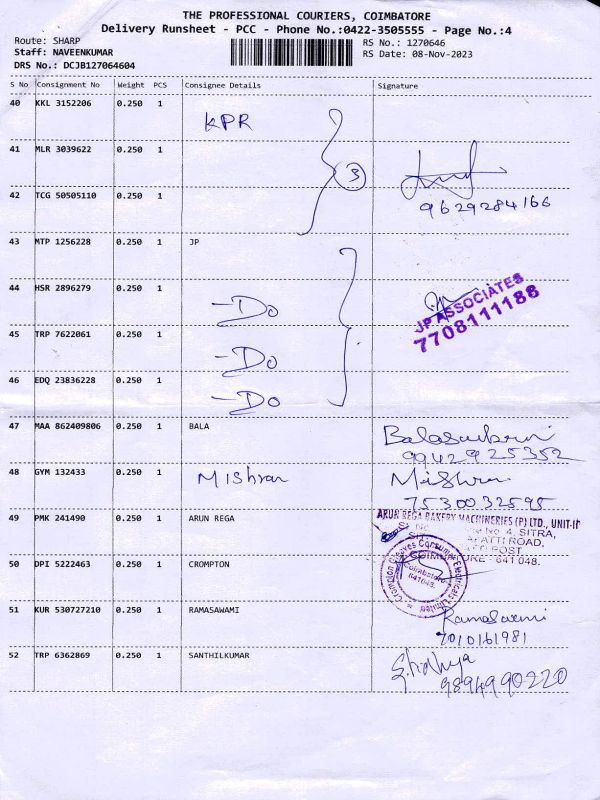 THE PROFESSIONAL COURIERS, COIMBATORE
Delivery Runsheet - PCC - Phone No.:0422-3505555 - Page No.:4
Route: SHARP
RS No.: 1270646
Staff: NAVEENKUMAR
RS Date: 08-Nov-2023
DRS No.: DCJB127064604
S No Consignment No Weight PCS Consignee Details Signature
40 KKL 3152206 0.250 1 KPR
41 MLR 3039622 0.250 1
3
42 TCG 50505110 0.250 1
9629284166
43 MTP 1256228 0.250 1 JP
44 HSR 2896279 0.250 1 -Do
JP ASSOCIATES
7708111188
45 TRP 7622061 0.250 1 -Do
46 EDQ 23836228 0.250 1 -Do
47 MAA 862409806 0.250 1 BALA
9942925352
48 GYM 132433 0.250 1 Mishran
7530032595
49 PMK 241490 0.250 1 ARUN REGA
ARUN REGA BAKERY MACHINERIES (P) LTD., UNIT-II
No 4, SITRA,
ROAD,
POST
641 048.
50 DPI 5222463 0.250 1 CROMPTON
Crompton Greaves Consumer Electricals Limited
Coimbatore
641048.
51 KUR 530727210 0.250 1 RAMASAWAMI
Ramasawmi
7010161981
52 TRP 6362869 0.250 1 SANTHILKUMAR
9894990220